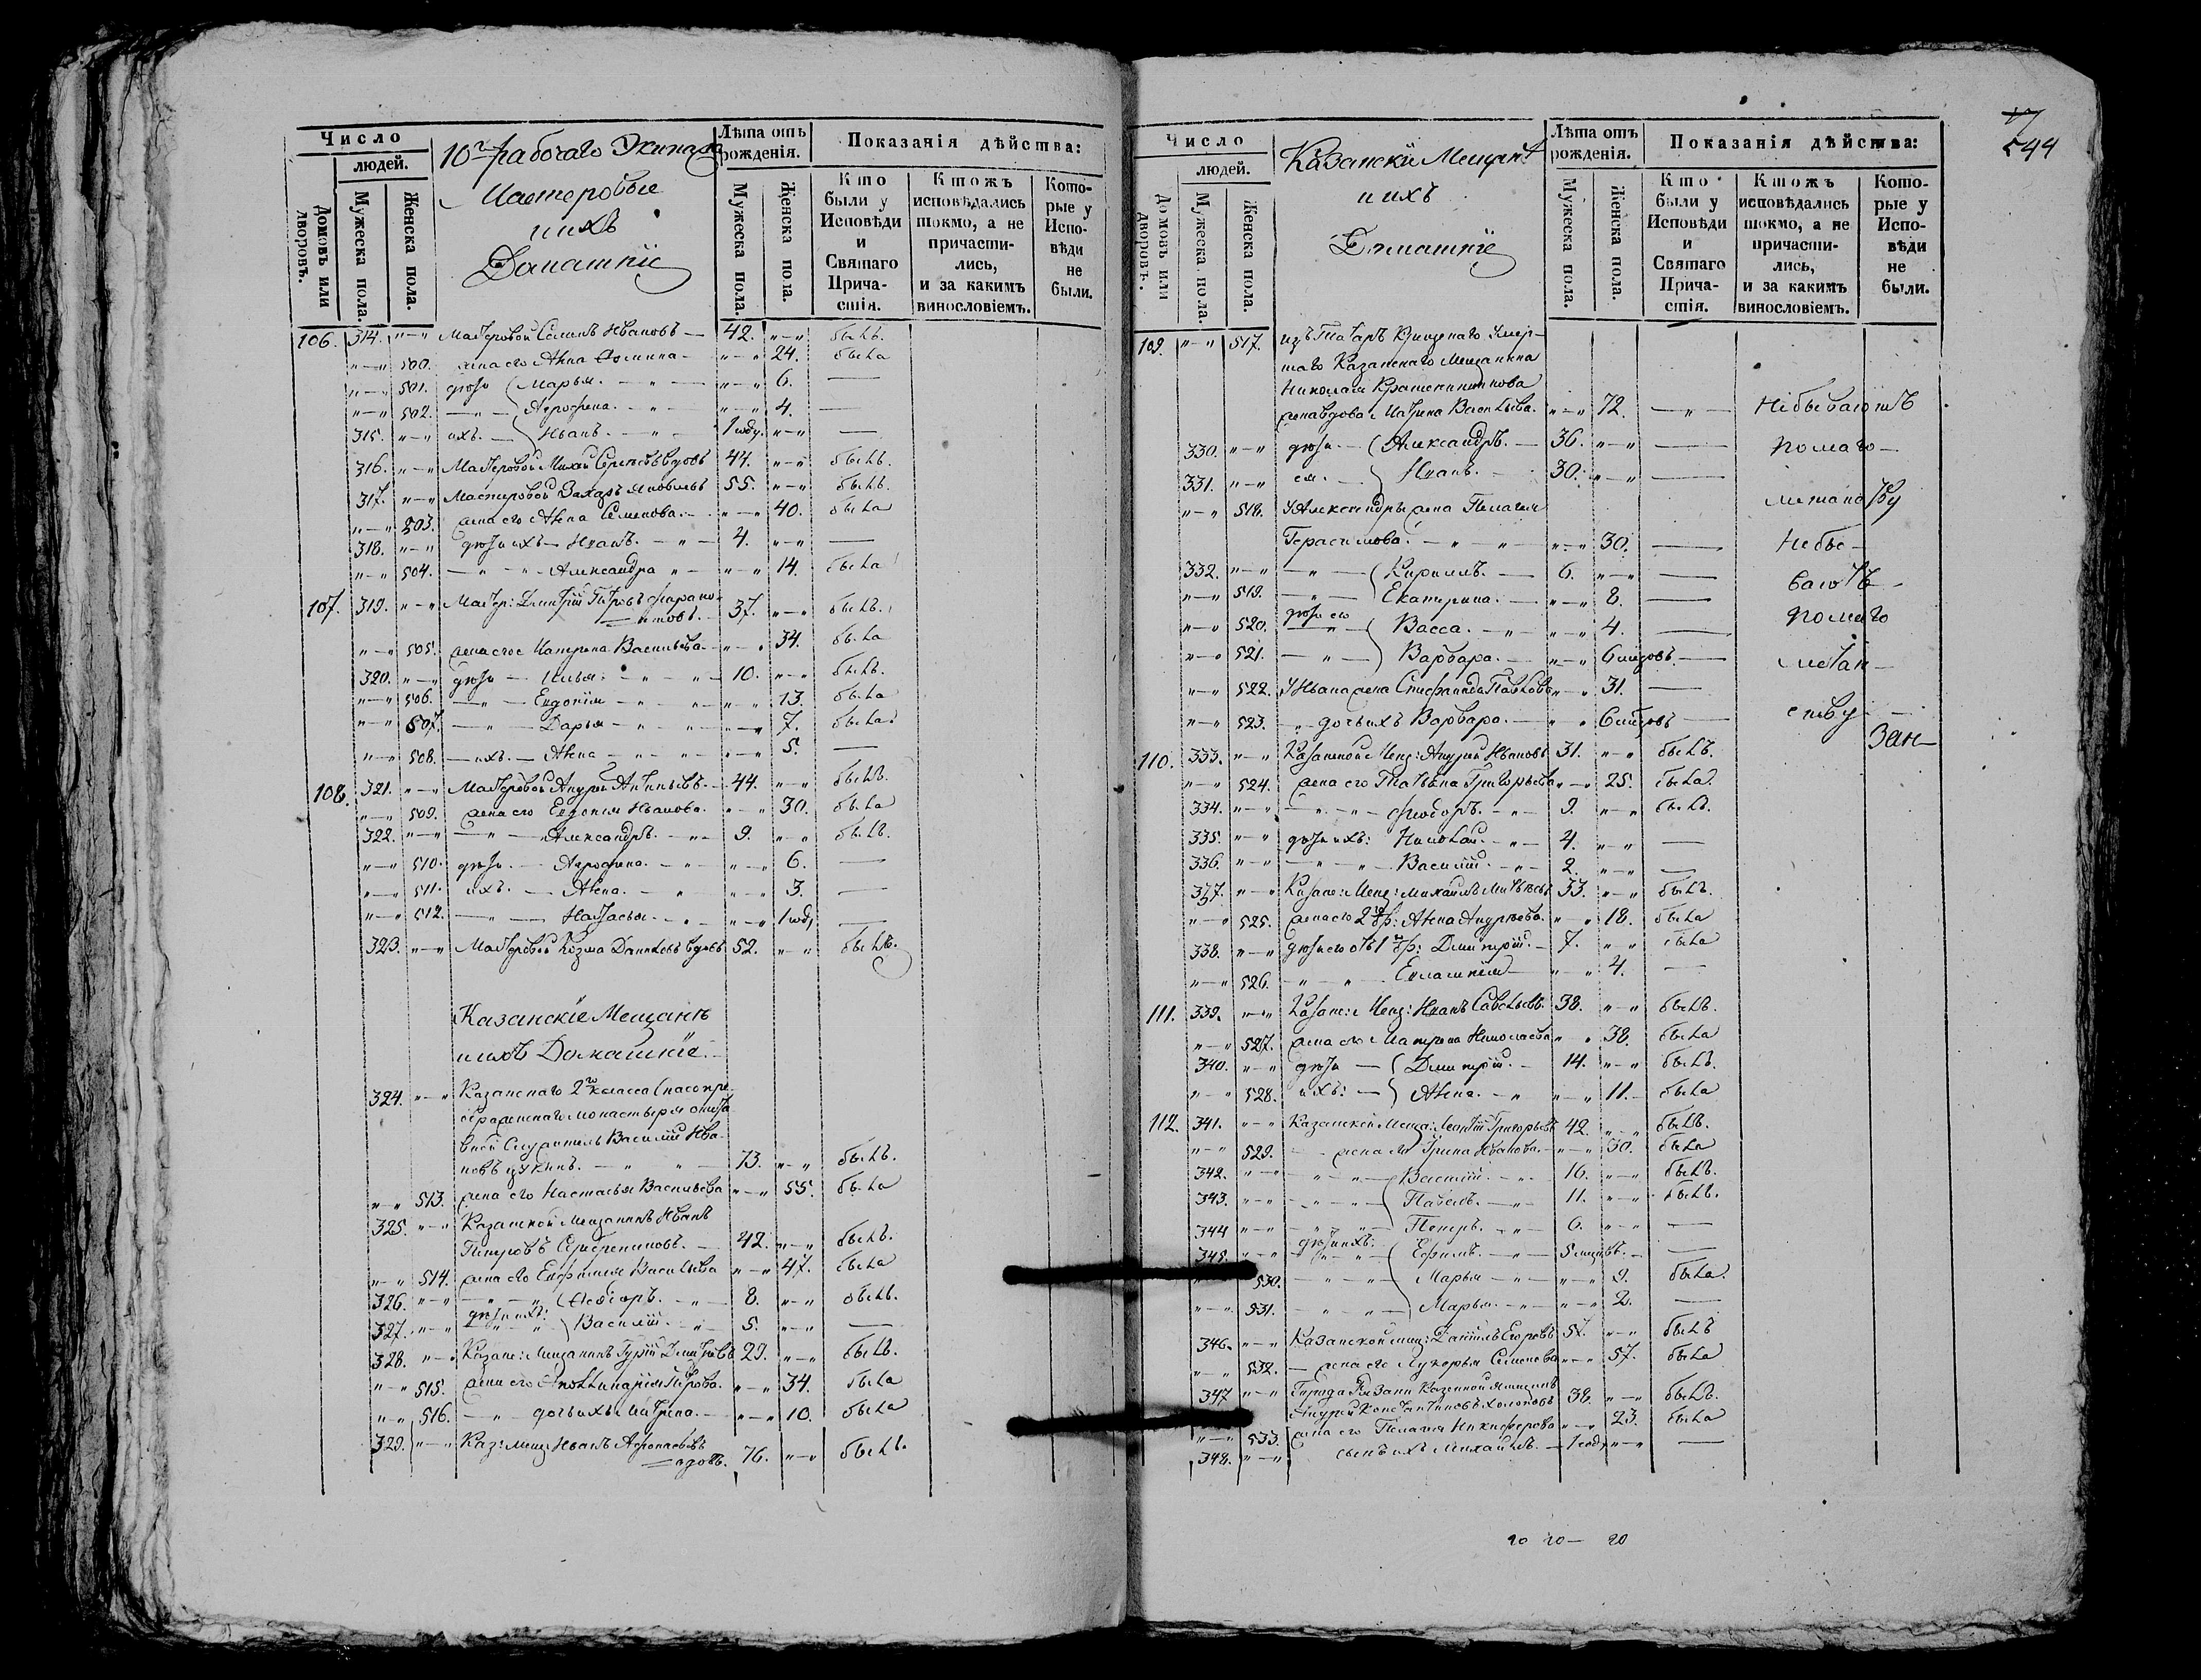 Число
людей.
Домовъ или дворовъ.
Мужеска пола.
Женска пола.
10го рабочаго Экипажа
Мастеровые
и ихъ
Домашніе
Лѣта отъ рожденія.
Мужеска пола.
Женска пола.
Показанія дѣйства:
Кто были у Исповѣди и Святаго Причастія.
Ктожъ исповѣдались токмо, а не причастились, и за какимъ винословіемъ.
Которые у Исповѣди не были.
106. 314. Мастеровой Ивановъ 42. былъ.
500. жена его Анна 24. была
501. дѣти Марья. 6.
502. Агрофена. 4.
315. ихъ. Иванъ. 1 году.
316. Мастеровой вдовъ 44. былъ.
317. Мастеровой Захаръ Яковлевъ 55. былъ.
503. жена его Анна Семенова. 40. была
318. дѣти ихъ Иванъ. 4.
504. Александра 14. была
107. 319. Мастер: Дмитрій Петровъ 37. былъ.
505. жена его Матрена Васильева 34. была
320. дѣти Илья: 10. былъ.
506. Евдокія 13. была
507. Дарья 7. была
508. ихъ. Анна 5.
108. 321. Мастеровой Андрей 44. былъ.
509. жена его Евдокія Иванова. 30. была
322. Александръ. 9. былъ.
510. дѣти Агрофина. 6.
511. ихъ. Анна. 3.
512. Настасья. 1 году
323. Мастеровой Козма Даниловъ вдовъ 52. былъ.
Казанскіе Мещане
и ихъ Домашніе.
324. Казанскаго 2го класса Спасопре-
ображенскаго монастыря
Служитель Василій Ива-
новъ 73. былъ.
513. жена его Настасья Васильева 55. была
325. Казанской Мещанинъ Иванъ
Петровъ Серебениковъ. 42. былъ.
514. жена его Евфимия Васильева 47. была
326. Ѳедоръ. 8. былъ.
дѣти ихъ:
327. Василій. 5.
328. Казанс: Мещанинъ Гурій Дмитріевъ 29. былъ.
515. жена его Аполлинарія Петрова. 34. была
516. дочь ихъ Матрена. 10. была
329. Каз: Мещ: Иванъ Афонасьевъ
вдовъ. 76. былъ.
544
Число
людей.
Домовъ или дворовъ.
Мужеска пола.
Женска пола.
Казанскіи Мещане
и ихъ
Домашніе
Лѣта отъ рожденія.
Мужеска пола.
Женска пола.
Показанія дѣйства:
Кто были у Исповѣди и Святаго Причастія.
Ктожъ исповѣдались токмо, а не причастились, и за какимъ винословіемъ.
Которые у Исповѣди не были.
109. 517. изъ Татаръ Крещенаго Умер-
шаго Казанскаго Мещанина
Николая Крашенинникова
жена вдова Матрена Васильева. 72. не бываютъ
330. дѣти Александръ. 36. по мало-
331. ея. Иванъ. 30.
518. У Александры жена Пелагия
Герасимова. 30. не бы-
332. Кириллъ. 6. ваютъ
519. Екатерина. 8.
дѣти его
520. Васса. 4. по мало
521. Варвара. 6 мцовъ.
522. У Ивана жена Стефанида Павлова 31.
523. дочь ихъ Варвара. 6 мцовъ
110. 333. Казанской Мещ: Андрей Ивановъ 31. былъ.
524. жена его Татьяна Григорьева 25. была
334. Ѳеодоръ. 9. былъ.
335. дѣти ихъ: Николай. 4.
336. Василій. 2.
337. Казанс: Мещ: Михаилъ Матвѣевъ 33. былъ.
525. жена его 2го бр: Анна Андреева. 18. была
338. дѣти его отъ 1го бр: Дмитрій. 7. была
526. 4.
111. 339. Казанс: Мещ: Иванъ Савельевъ. 38. былъ.
527. жена его Матрена Николаева 38. была
340. дѣти Дмитрій. 14. былъ.
528. ихъ: Анна. 11. была
112. 341. Казанской Меща: Григорьевъ 42. былъ.
529. жена его Ирина Иванова. 30. была
342. Василій. 16. былъ.
343. Павелъ. 11. былъ.
344. Петръ. 6.
дѣти ихъ:
345. Ефимъ. 5 мцовъ.
530. Марья 9. была.
531. Марья. 2.
346. Казанской мещ: Даніилъ Егоровъ 57. былъ
532. жена его Лукерья Семенова 57. была
347. Города Казани Казенной
Андрей Константиновъ 38. былъ.
533. жена его Пелагия Никифорова 23. была
348. сынъ ихъ Михаилъ. 1 году
20 20— 20